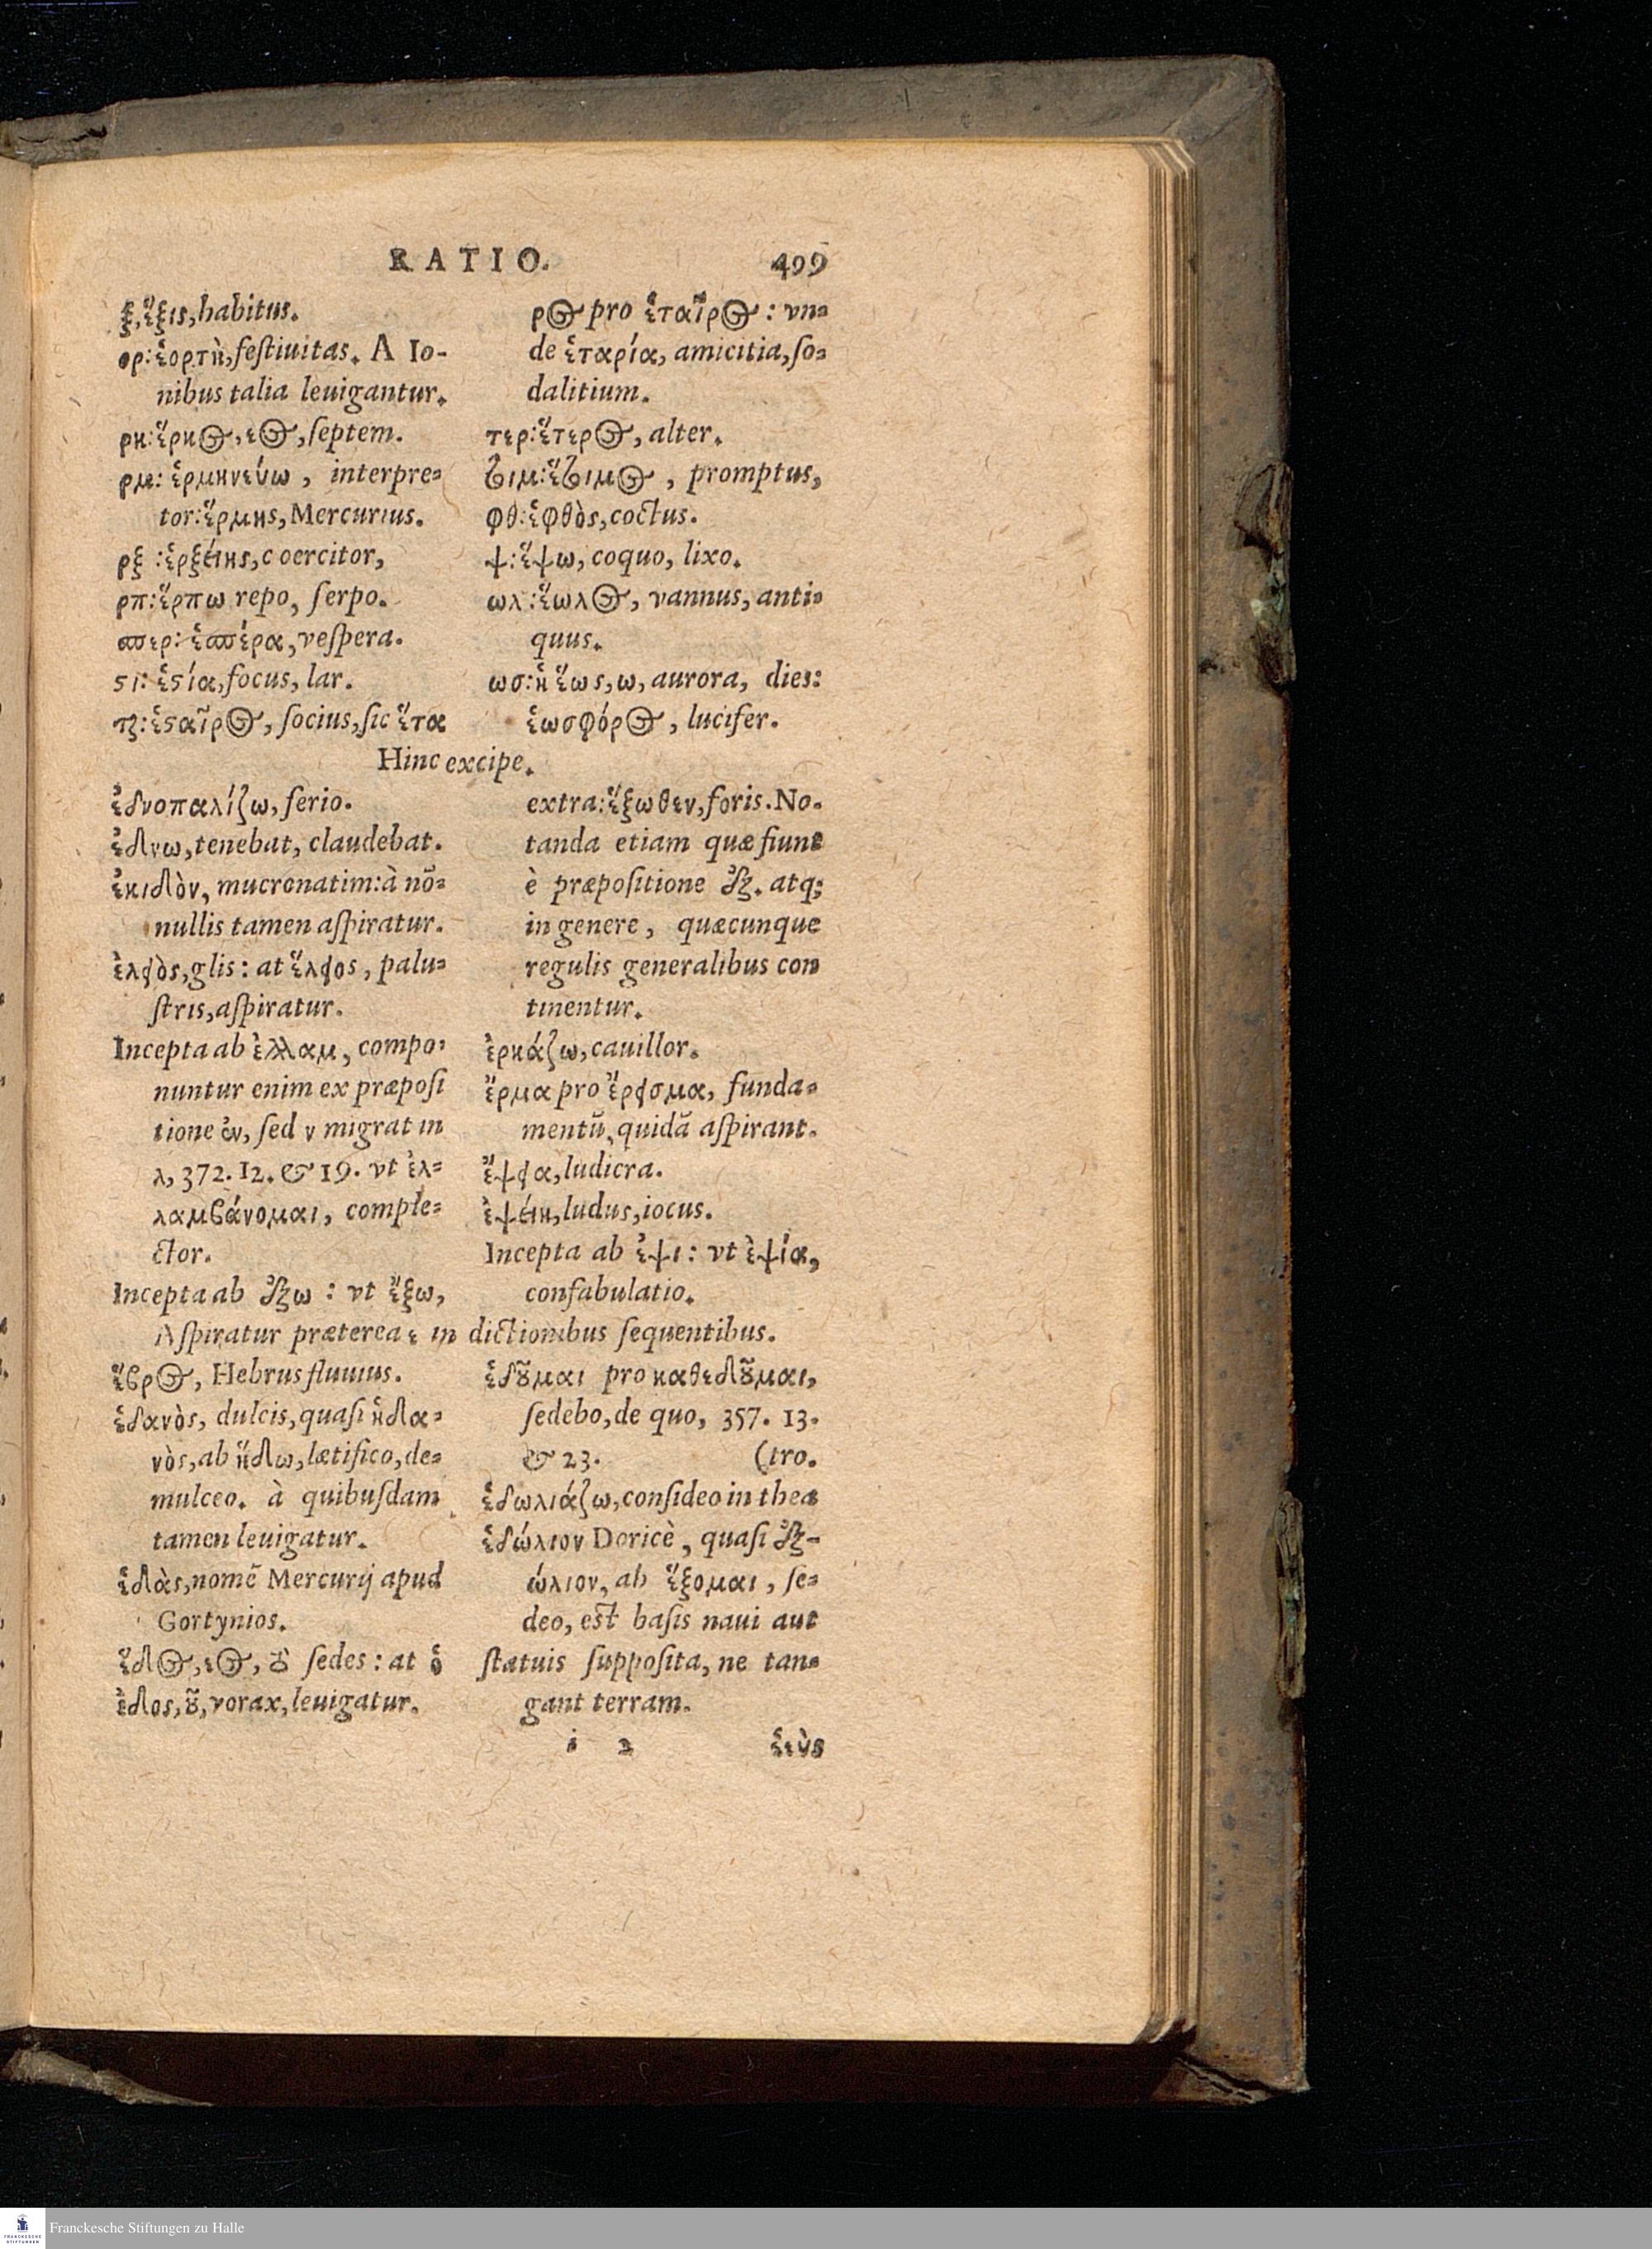 RATIO. 499
ξ, ἕξις, habitus.
ορ: ἑορτὴ, festiuitas. A Io-
nibus talia leuigantur.
ρκ: ἕρκος, εος, septem.
ρμ: ἑρμηνεύω, interpre-
tor: ἕρμης, Mercurius.
ρξ: ἑρξείης, coercitor,
ρπ: ἕρπω repo, serpo.
σπερ: ἑσπέρα, vespera.
στι: ἑστία, focus, lar.
ἑταῖρος, socius, sic ἕτα
ρος pro ἑταῖρος: vn-
de ἑταρία, amicitia, so-
dalitium.
τερ: ἕτερος, alter.
τοιμ: ἕτοιμος, promptus,
φθ: ἑφθὸς, coctus.
ψ: ἕψω, coquo, lixo.
ωλ: ἕωλος, vannus, anti-
quus.
ωσ: ἡ ἕως, ω, aurora, dies:
ἑωσφόρος, lucifer.
Hinc excipe.
ἐδνοπαλίζω, ferio.
tenebat, claudebat.
mucronatim: à nō-
nullis tamen aspiratur.
ἐλειὸς, glis: at ἕλειος, palu-
stris, aspiratur.
Incepta ab ἐλλαμ, compo-
nuntur enim ex præposi
tione ἐν, sed ν migrat in
λ, 372. 12. & 19. vt ἐλ-
λαμβάνομαι, comple-
ctor.
Incepta ab ἐξω: vt ἔξω,
extra: ἔξωθεν, foris. No-
tanda etiam quæ fiunt
è præpositione ἐξ. atq;
in genere, quæcunque
regulis generalibus con
tinentur.
cauillor.
ἔρμα pro ἔρεισμα, funda-
mentū, quidā aspirant.
ἔψεια, ludicra.
ludus, iocus.
Incepta ab ἐψι: vt ἐψία,
confabulatio.
Aspiratur præterea ε in dictionibus sequentibus.
ἕβρος, Hebrus fluuius.
ἑδανὸς, dulcis, quasi ἡδα-
νὸς, ab ἥδω, lætifico, de-
mulceo. à quibusdam
tamen leuigatur.
ἑδὰς, nomē Mercurij apud
Gortynios.
ἕδος, εος, ους sedes: at ὁ
ἐδος, οῦ, vorax, leuigatur.
ἑδοῦμαι pro καθεδοῦμαι,
sedebo, de quo, 357. 13.
& 23. (tro.
ἑδωλιάζω, consideo in thea
ἑδώλιον Doricè, quasi ἑξ-
ώλιον, ab ἕξομαι, se-
deo, est basis naui aut
statuis supposita, ne tan-
gant terram.
i 2 ἑεὺς
Franckesche Stiftungen zu Halle